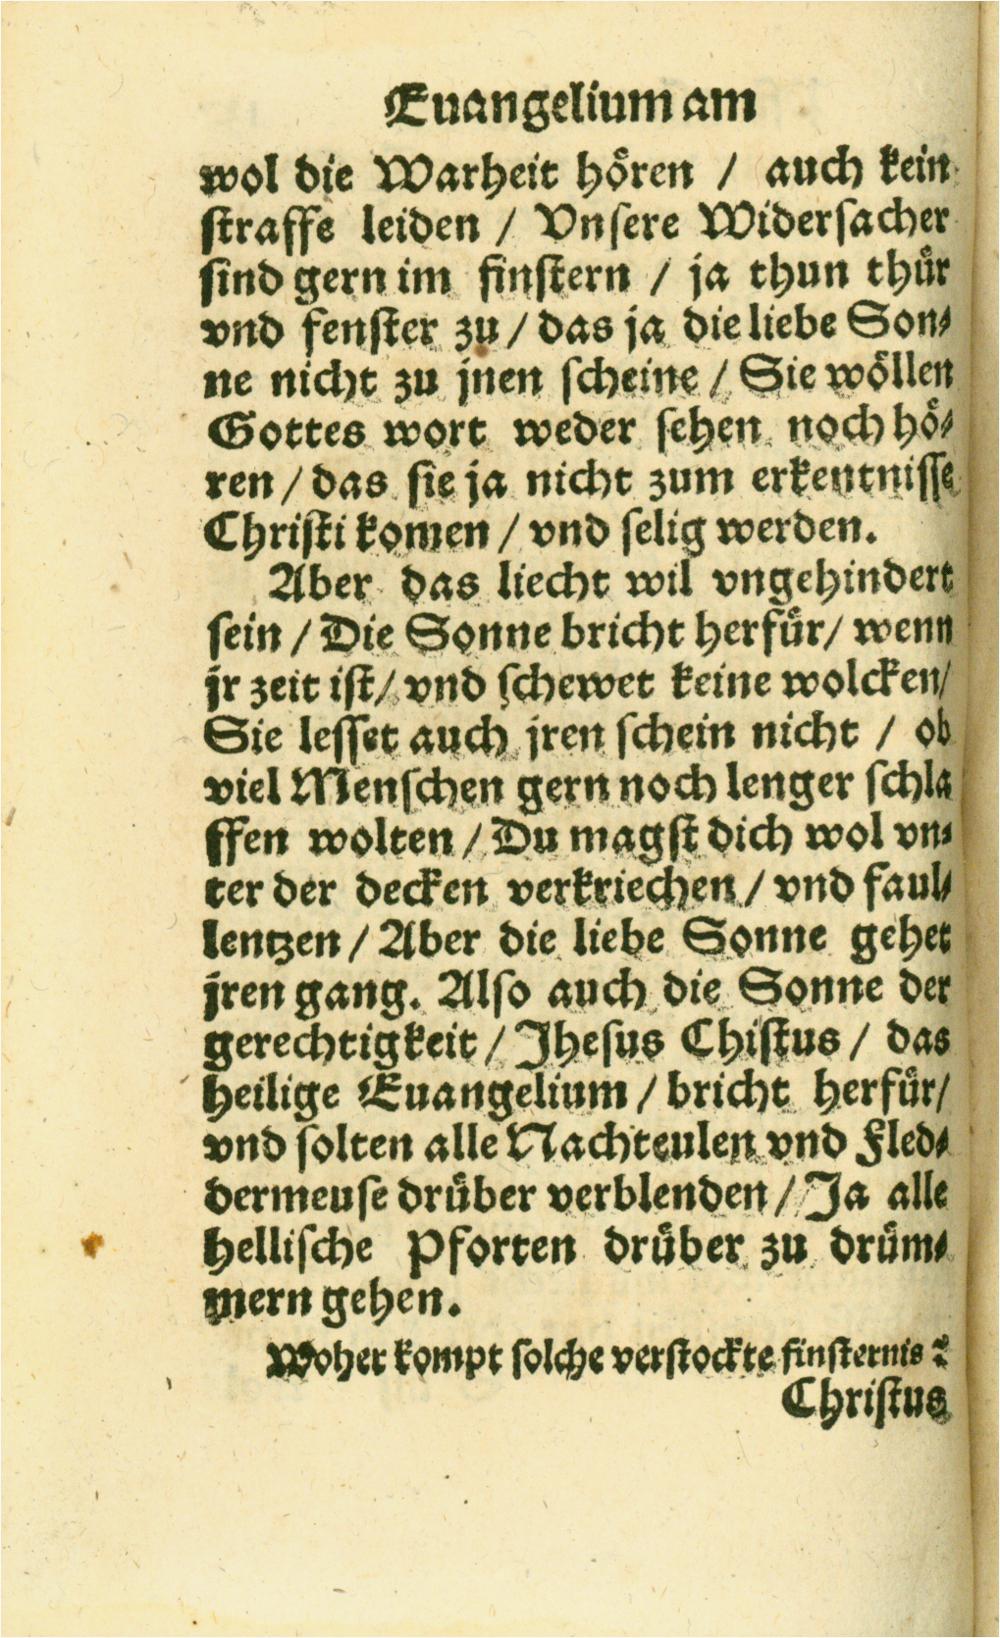 Euangelium am
wol die Warheit hören / auch kein
straffe leiden / Vnsere Widersacher
sind gern im finstern / ja thun thür
vnd fenster zu / das ja die liebe Son⸗
ne nicht zu jnen scheine / Sie wöllen
Gottes wort weder sehen noch hö⸗
ren / das sie ja nicht zum erkentnisse
Christi komen / vnd selig werden.
Aber das liecht wil vngehindert
sein / Die Sonne bricht herfür / wenn
jr zeit ist / vnd schewet keine wolcken /
Sie lesset auch jren schein nicht / ob
viel Menschen gern noch lenger schla
ffen wolten / Du magst dich wol vn⸗
ter der decken verkriechen / vnd faul⸗
lentzen / Aber die liebe Sonne gehet
jren gang. Also auch die Sonne der
gerechtigkeit / Jhesus Chistus / das
heilige Euangelium / bricht herfür /
vnd solten alle Nachteulen vnd Fled⸗
dermeuse drüber verblenden / Ja alle
hellische Pforten drüber zu drüm⸗
mern gehen.
Woher kompt solche verstockte finsternis?
Christus